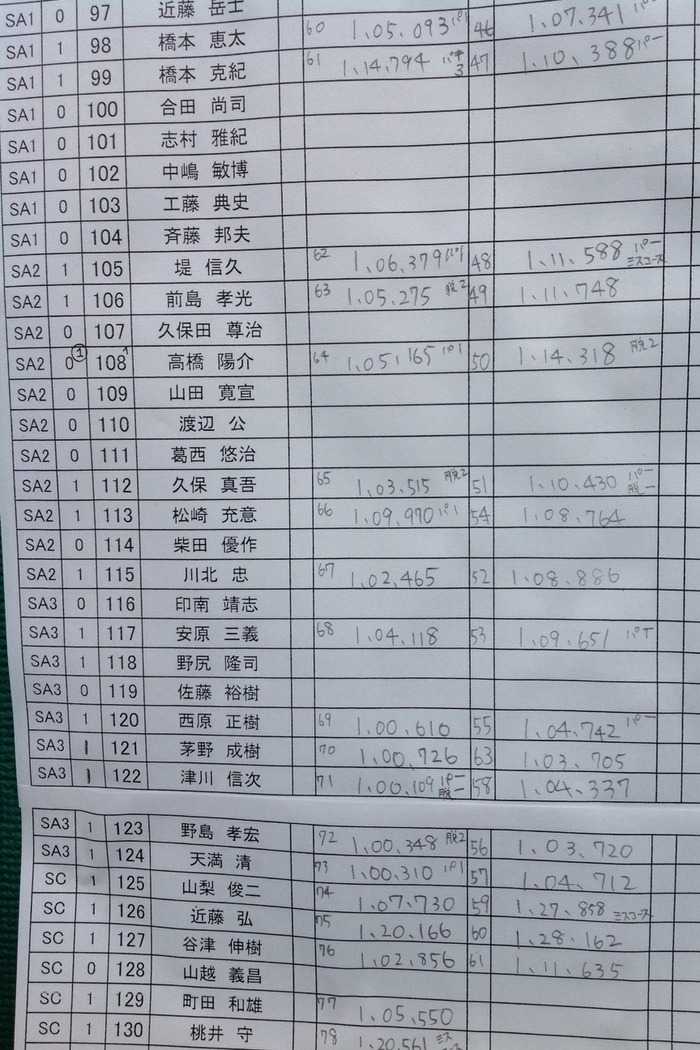 SA1 0 97 近藤 岳士 60 1.05.093 パ1 46 1.07.341 パー
SA1 1 98 橋本 恵太 61 1.14.794 47 1.10.388 パー
SA1 1 99 橋本 克紀
SA1 0 100 合田 尚司
SA1 0 101 志村 雅紀
SA1 0 102 中嶋 敏博
SA1 0 103 工藤 典史
SA1 0 104 斉藤 邦夫
SA2 1 105 堤 信久 62 1.06.379 パ1 48 1.11.588 パー ミスコース
SA2 1 106 前島 孝光 63 1.05.275 脱2 49 1.11.748
SA2 0 107 久保田 尊治
SA2 0 ① 108 高橋 陽介 64 1.05.165 パ1 50 1.14.318 脱2
SA2 0 109 山田 寛宣
SA2 0 110 渡辺 公
SA2 0 111 葛西 悠治
SA2 1 112 久保 真吾 65 1.03.515 脱2 51 1.10.430 パー 脱一
SA2 1 113 松崎 充意 66 1.09.970 パ1 54 1.08.764
SA2 0 114 柴田 優作
SA2 1 115 川北 忠 67 1.02.465 52 1.08.886
SA3 0 116 印南 靖志
SA3 1 117 安原 三義 68 1.04.118 53 1.09.651
SA3 1 118 野尻 隆司
SA3 0 119 佐藤 裕樹
SA3 1 120 西原 正樹 69 1.00.610 55 1.04.742 パー
SA3 1 121 茅野 成樹 70 1.00.726 63 1.03.705
SA3 1 122 津川 信次 71 1.00.109 パー 脱一 58 1.04.337
SA3 1 123 野島 孝宏 72 1.00.348 脱2 56 1.03.720
SA3 1 124 天満 清 73 1.00.310 パ1 57 1.04.712
SC 1 125 山梨 俊二 74 1.07.730 59 1.27.858 ミスコース
SC 1 126 近藤 弘 75 1.20.166 60 1.28.162
SC 1 127 谷津 伸樹 76 1.02.856 61 1.11.635
SC 0 128 山越 義昌
SC 1 129 町田 和雄 77 1.05.550
SC 1 130 桃井 守 78 1.20.561